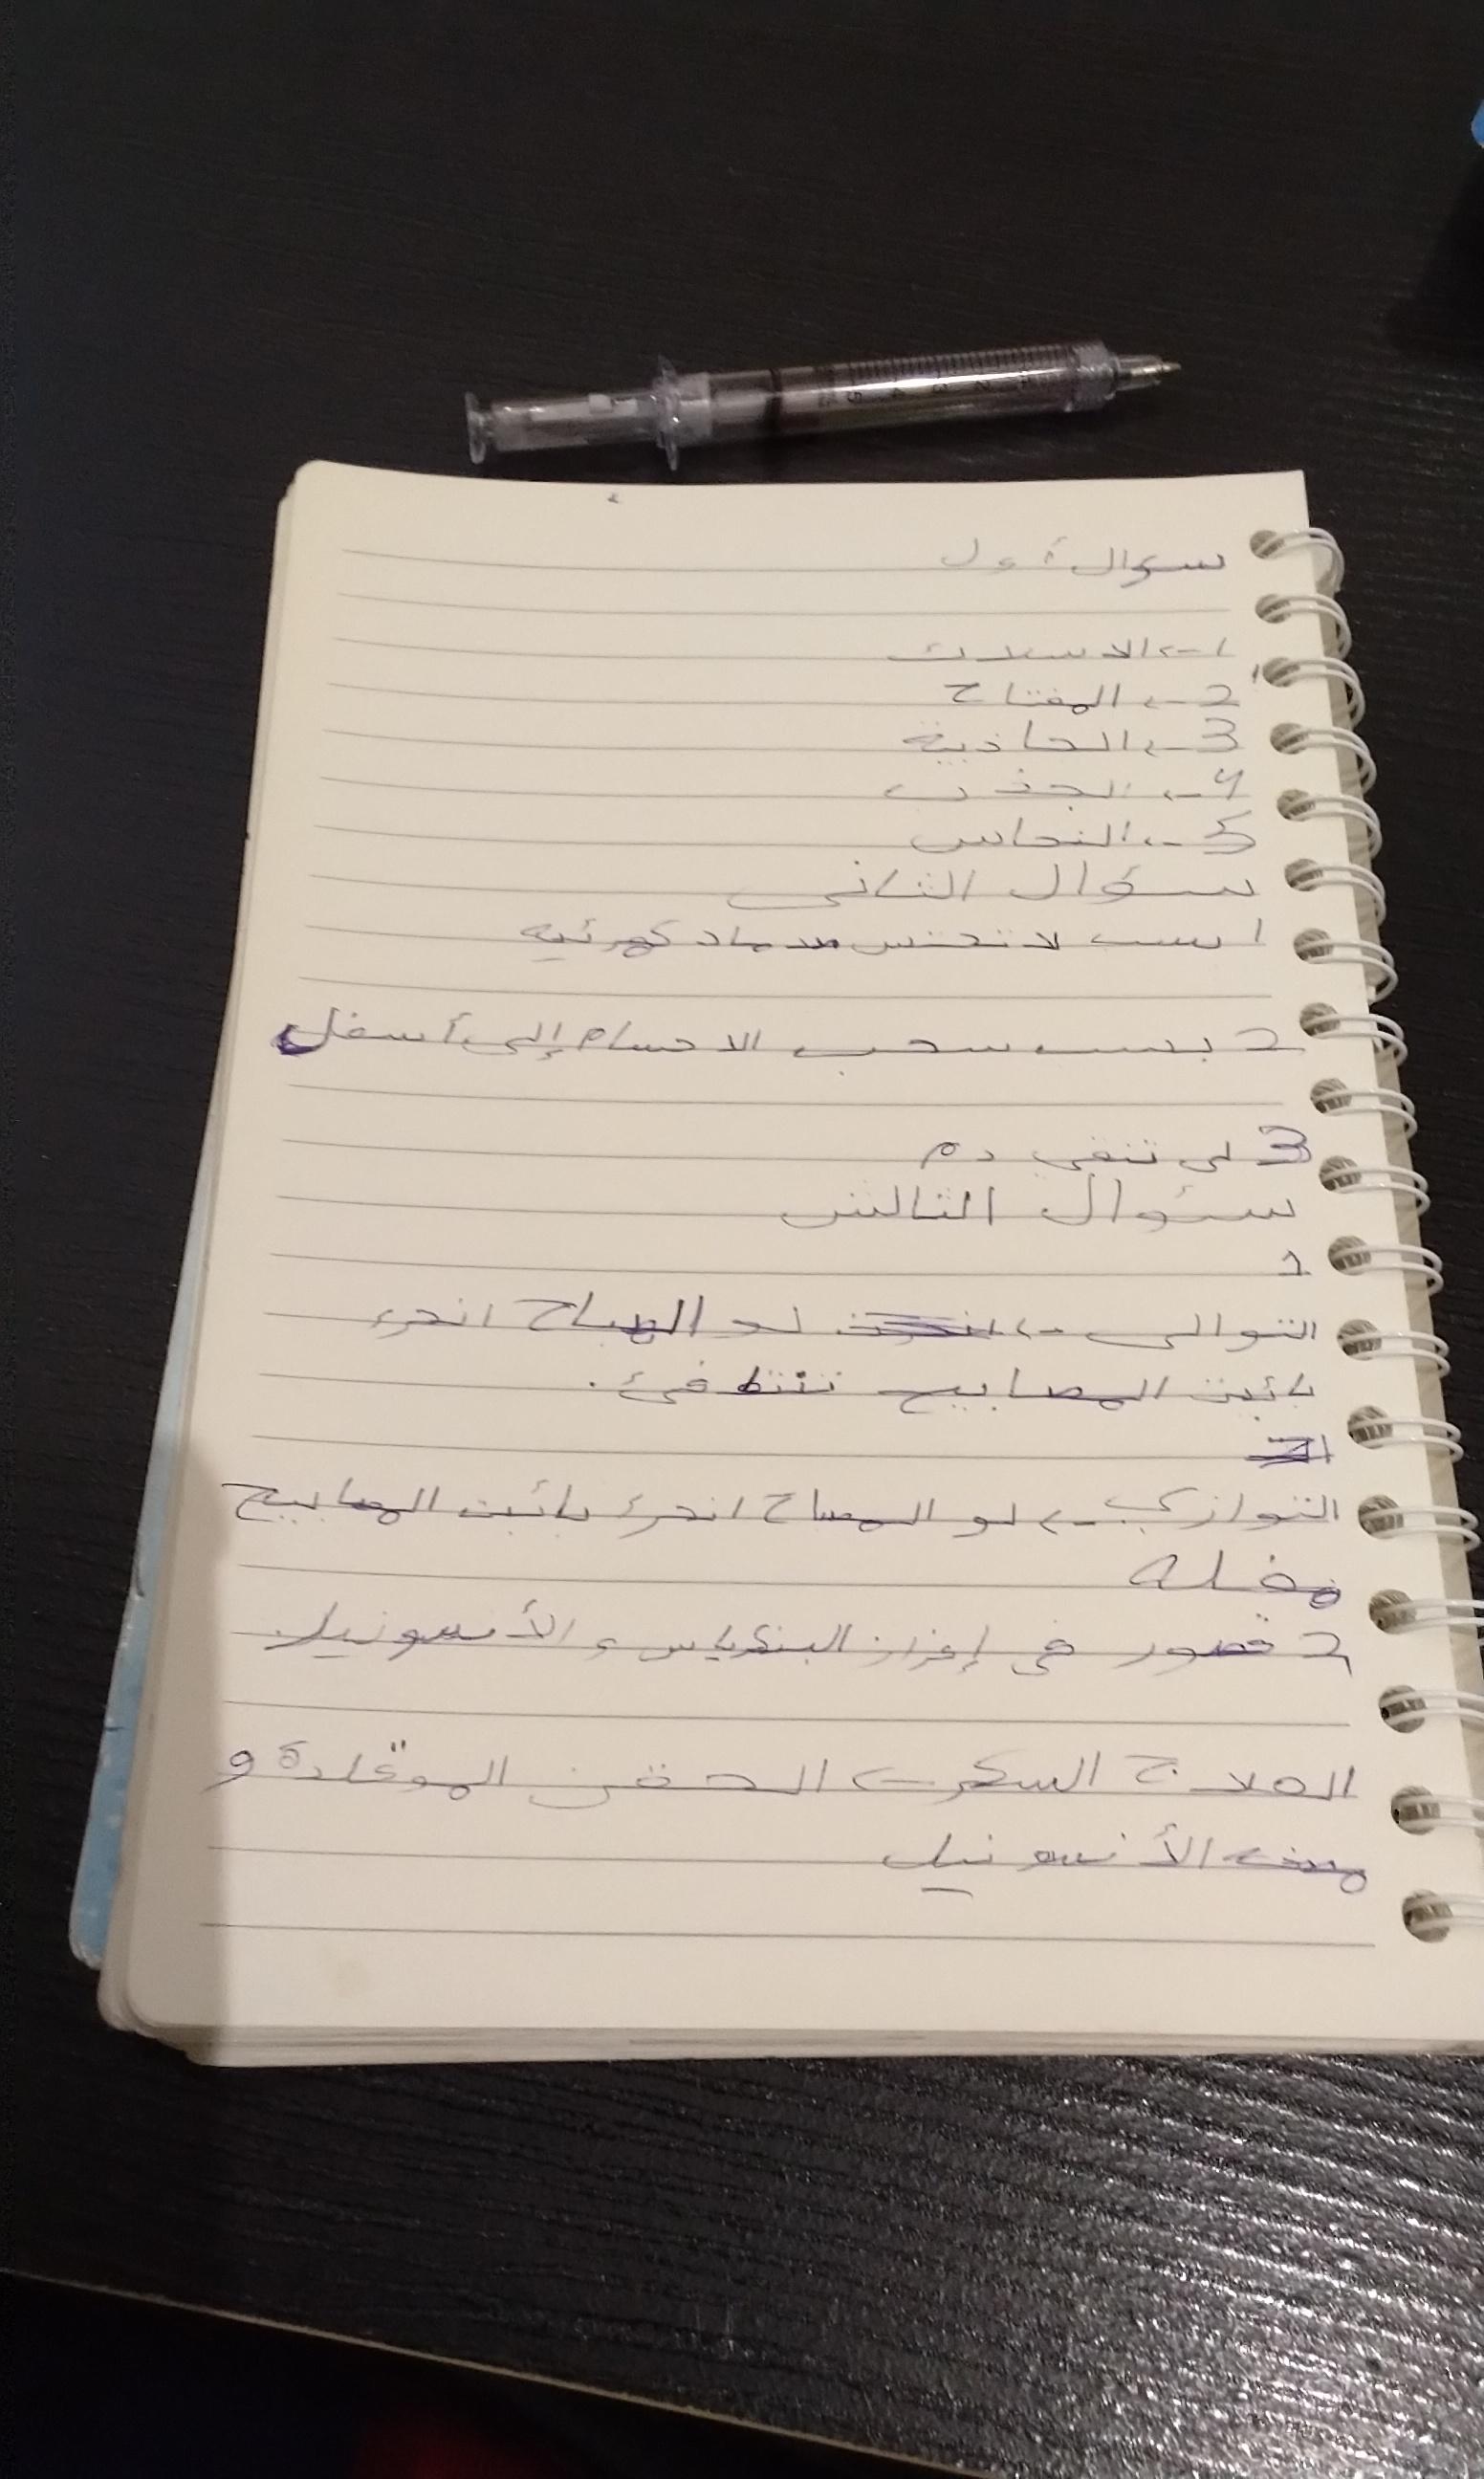 سؤال أول
1 -> الاسلاك
2 -> المفتاح
3 -> الجاذبية
4 -> الجذب
5 -> النحاس
سؤال الثاني
1 بسب لا تحتس كهرئيه
2 بسب سحب الاحسام إلى أسفل
3 لى تنقي دم
سئوال الثالث
1
التوالى -> لو المصباح انحرء
بائيت المصابيح تنتطفئ.
التوازي -> لو المصباح انحرء بائيت المصابيح
2 قصور في إفراز البنكرياس الأنسونيل
العلاج السكرى الحقن و
الأنسونيل